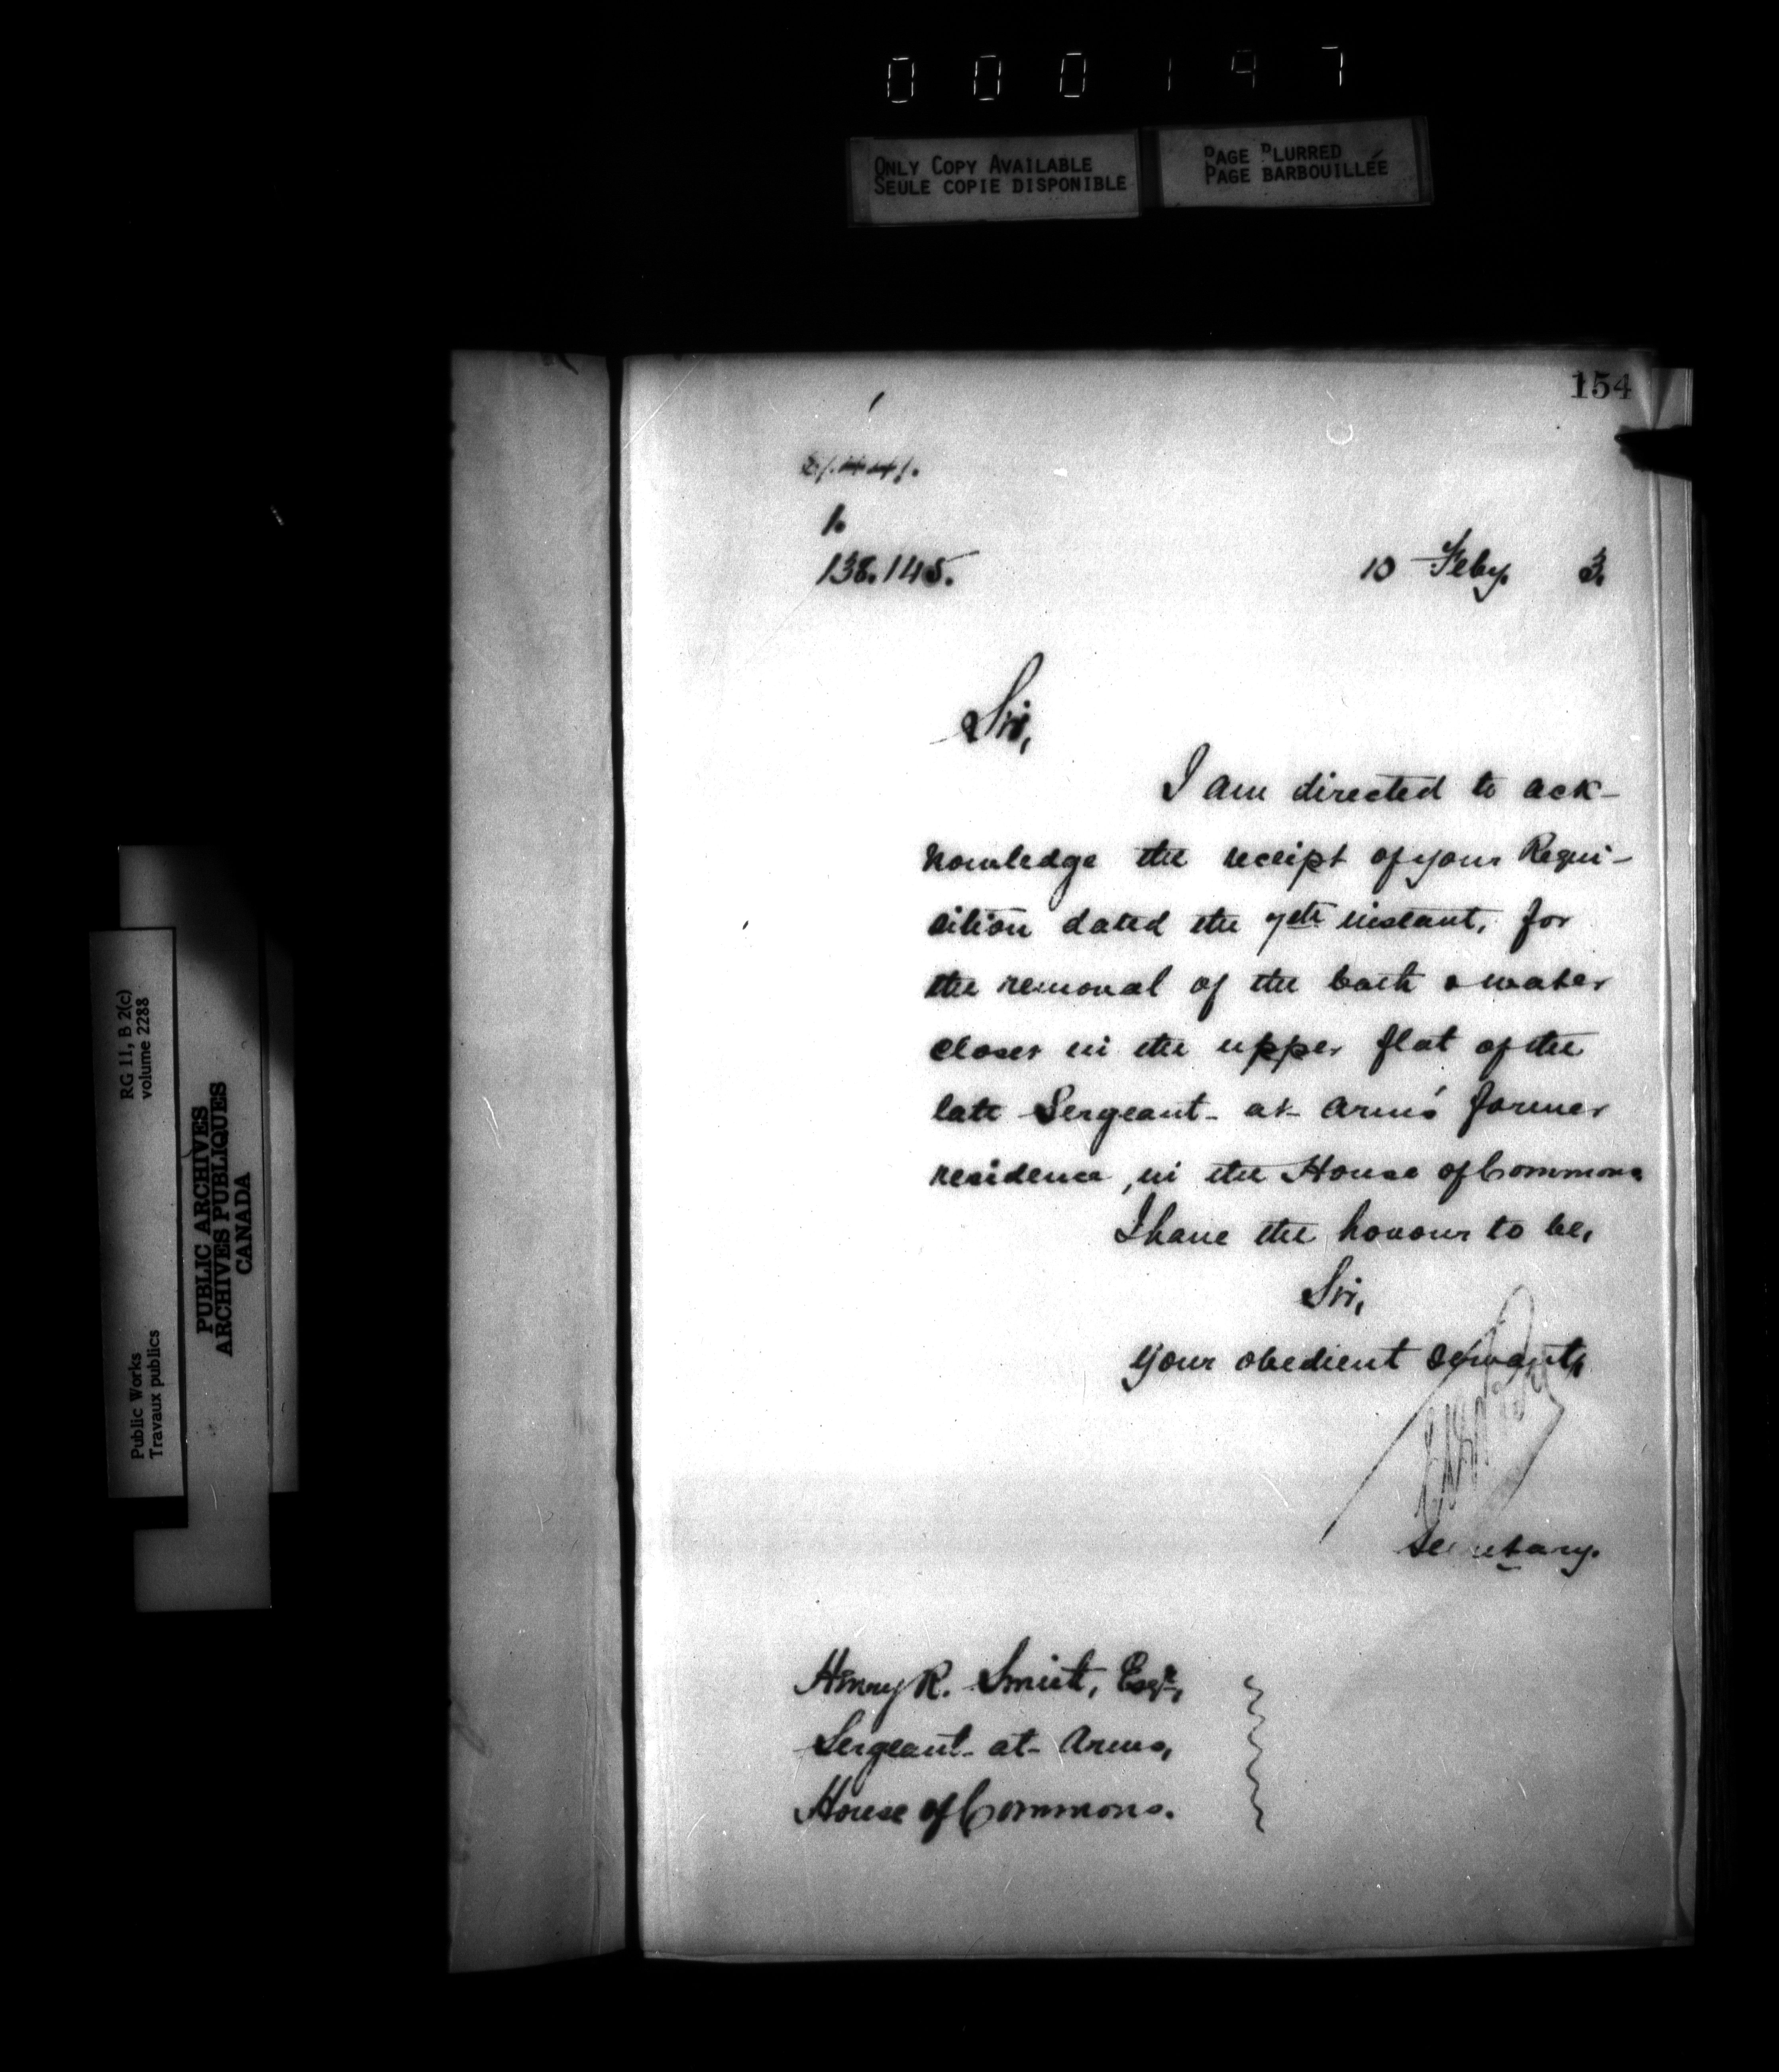 000197
ONLY COPY AVAILABLE
SEULE COPIE DISPONIBLE
PAGE BLURRED
PAGE BARBOUILLÉE
154
1.
138.145.
10 Feby. 3.
Sir,
I am directed to ack-
nowledge the receipt of your Requi-
sition dated the 7th instant, for
the removal of the bath & water
closet in the upper flat of the
late Sergeant-at-Arms' former
residence, in the House of Commons
I have the honour to be,
Sir,
Your obedient servant,
Secretary.
Henry R. Smith, Esqr.,
Sergeant-at-Arms,
House of Commons.
RG 11, B 2(c)
volume 2288
Public Works
Travaux publics
PUBLIC ARCHIVES
ARCHIVES PUBLIQUES
CANADA